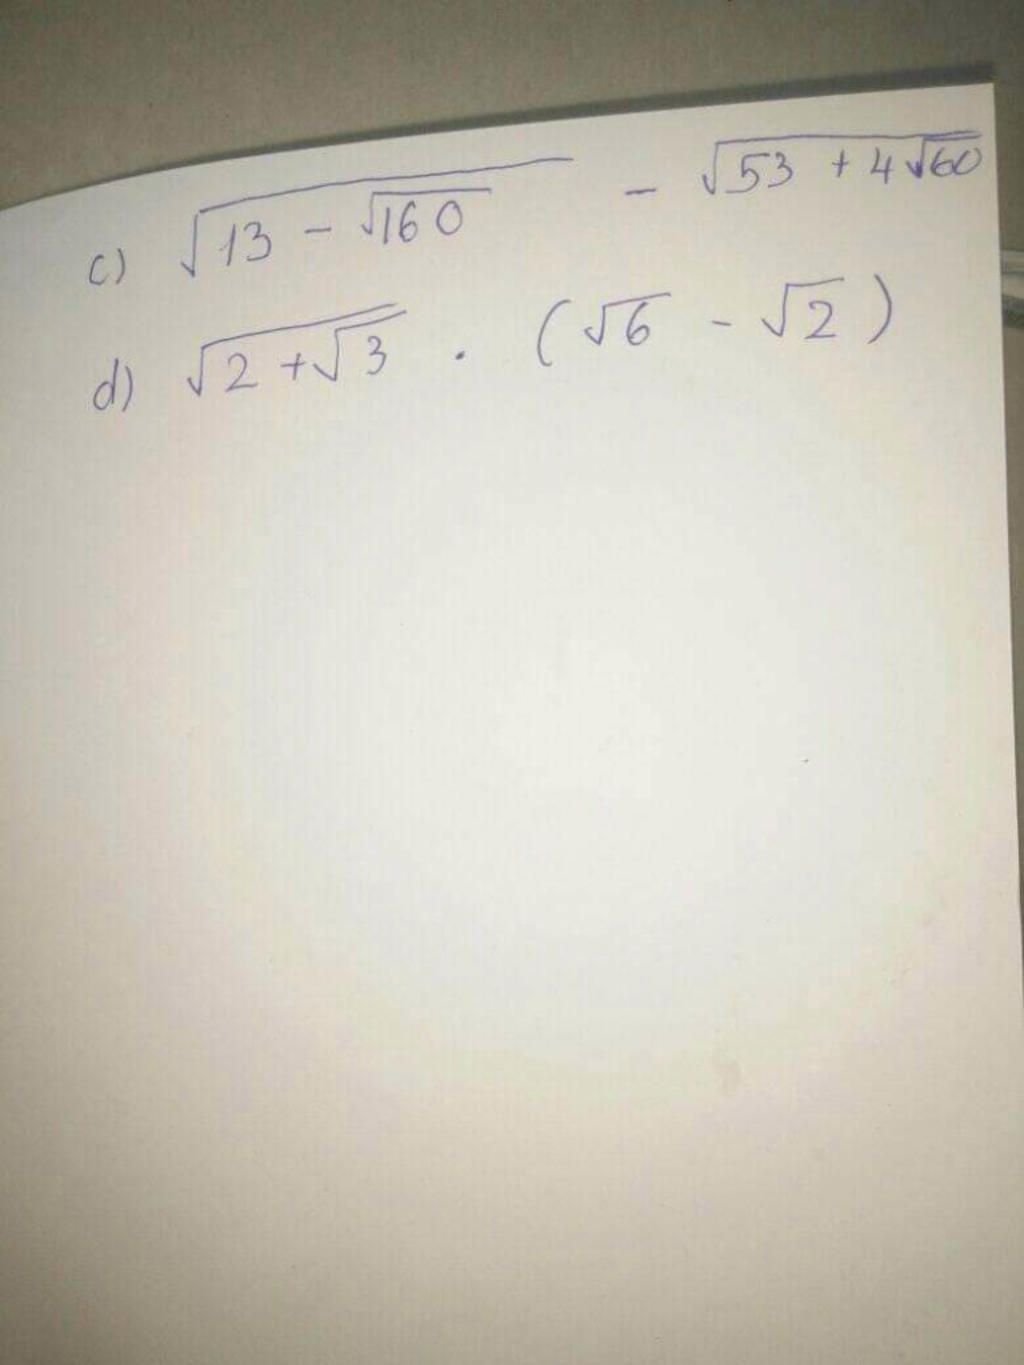 c) √(13 - √160) - √(53 + 4√60)
d) √(2 + √3) . (√6 - √2)